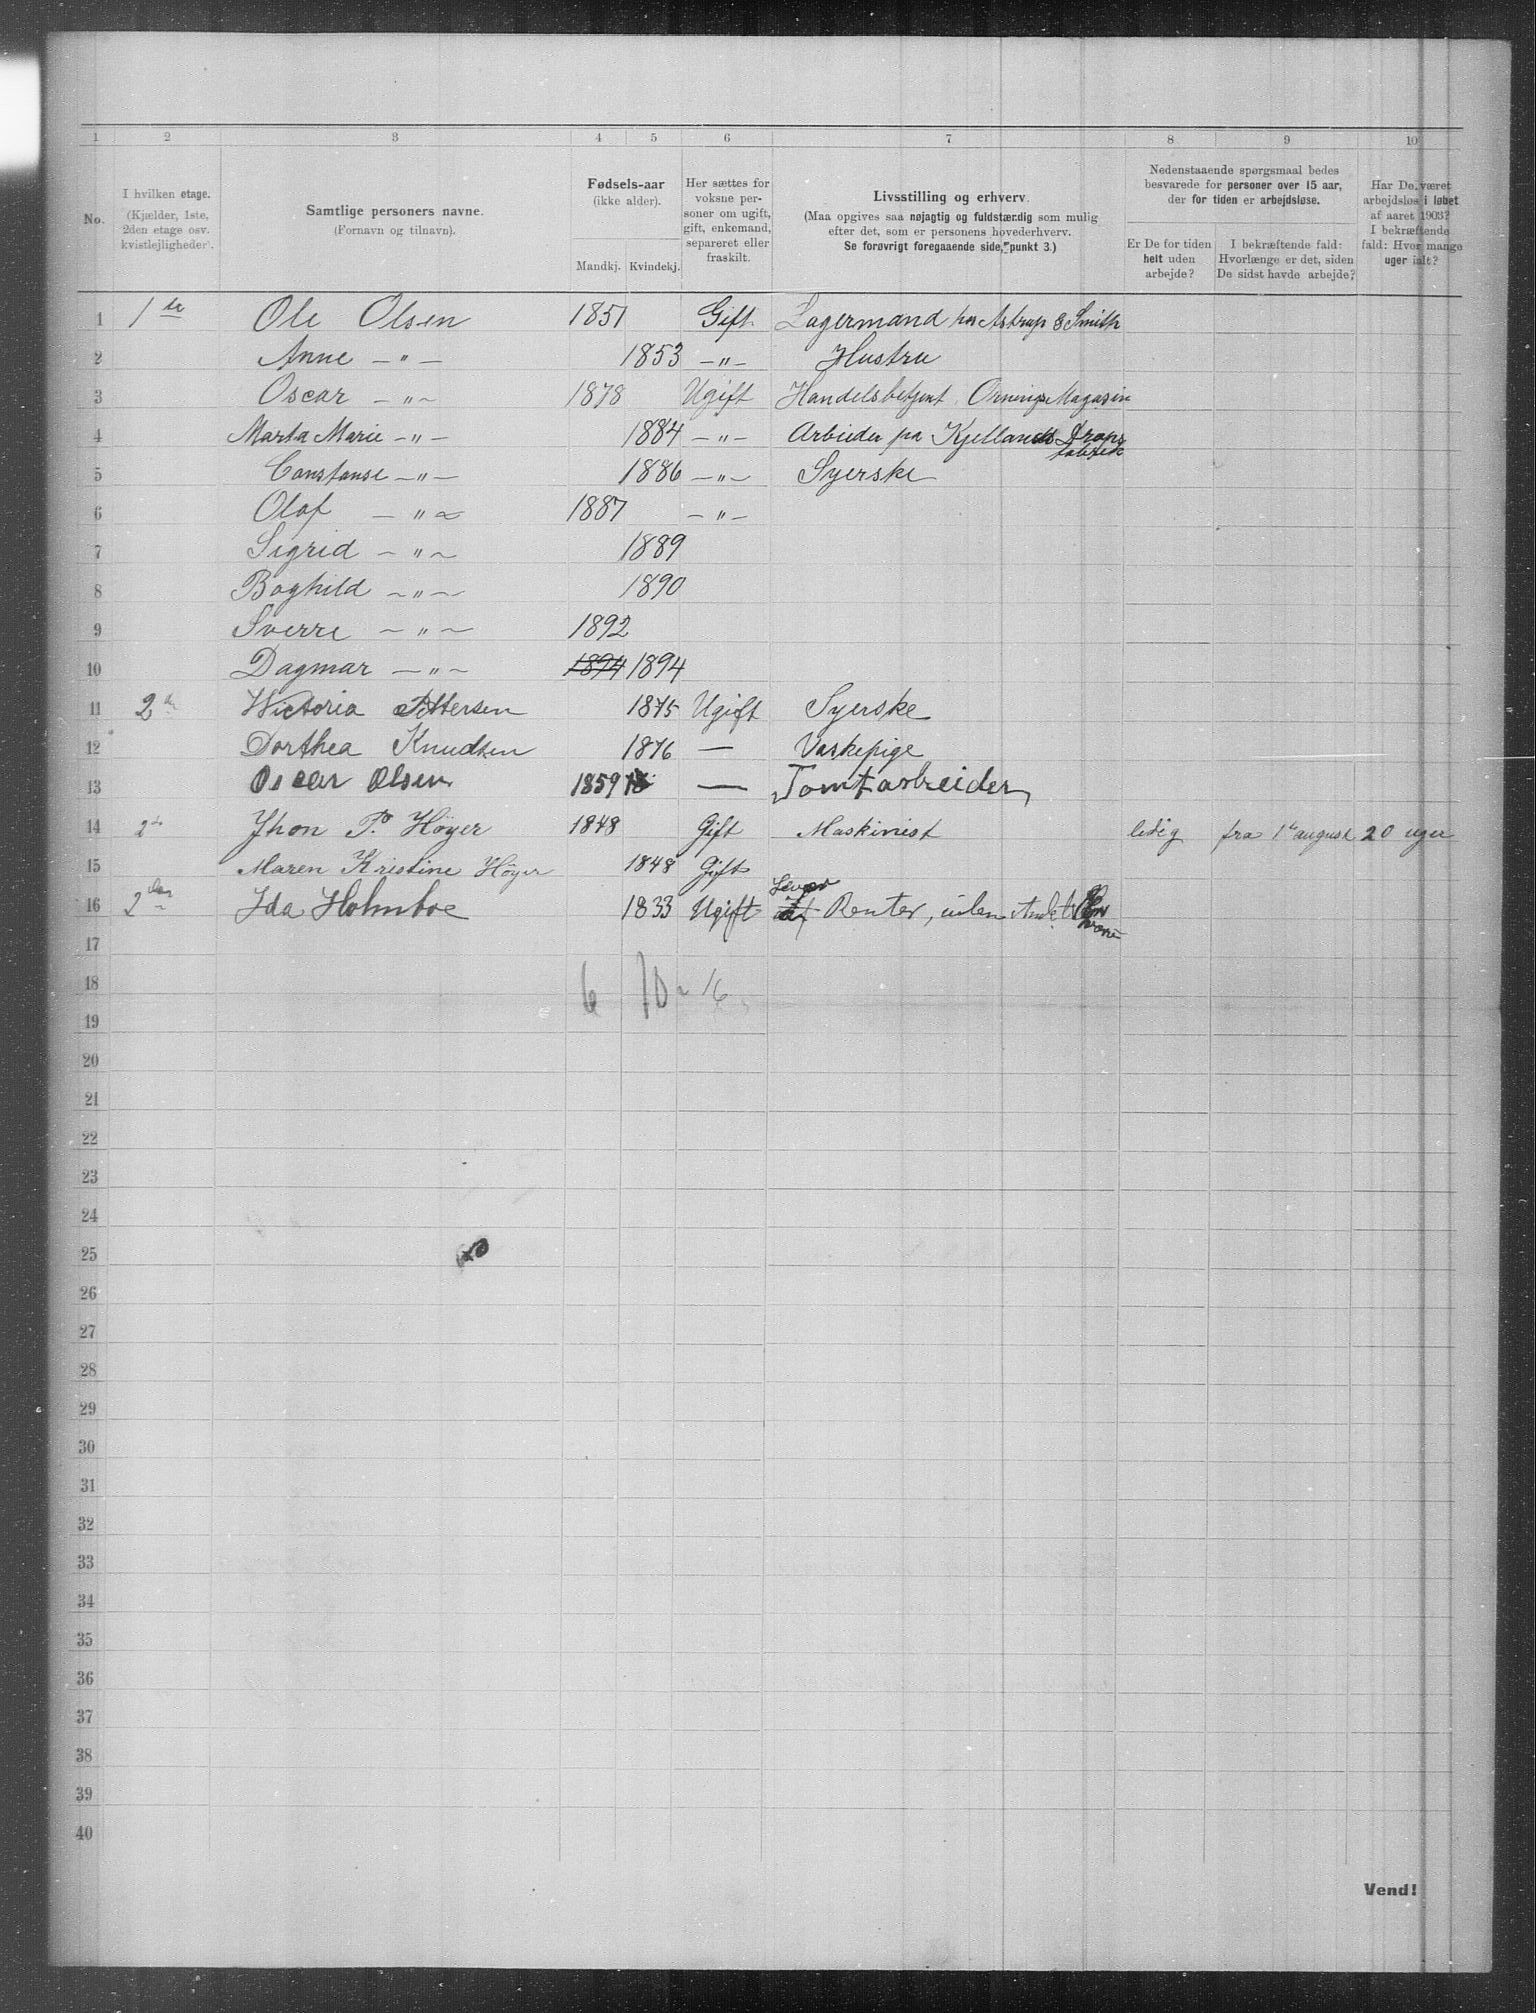 1 2 3 4 5 6 7 8 9 10
No.
I hvilken etage.
(Kjælder, 1ste,
2den etage osv.
kvistlejligheder).
Samtlige personers navne.
(Fornavn og tilnavn).
Fødsels-aar
(ikke alder).
Mandkj. Kvindekj.
Her sættes for
voksne per-
soner om ugift,
gift, enkemand,
separeret eller
fraskilt.
Livsstilling og erhverv.
(Maa opgives saa nøjagtig og fuldstændig som mulig
efter det, som er personens hovederhverv.
Se forøvrigt foregaaende side, punkt 3.)
Nedenstaaende spørgsmaal bedes
besvarede for personer over 15 aar,
der for tiden er arbejdsløse.
Er De for tiden
helt uden
arbejde?
I bekræftende fald:
Hvorlænge er det, siden
De sidst havde arbejde?
Har De været
arbejdsløs i løbet
af aaret 1903?
I bekræftende
fald: Hvor mange
uger ialt?
1 1ste Ole Olsen 1851 Gift Lagermand hos Astrup & Smith
2 Anne –"– 1853 –"– Hustru
3 Oscar –"– 1878 Ugift Handelsbetjent Magasin
4 Marta Marie –"– 1884 –"– Arbieder på Kjellands Drops
fabrik
5 Constanse –"– 1886 –"– Syerske
6 Olaf –"– 1887 –"–
7 Sigrid –"– 1889
8 Boghild –"– 1890
9 Sverre –"– 1892
10 Dagmar –"– 1894 1894
11 2den Wictoria Pettersen 1875 Ugift Syerske
12 Dorthea Knudsen 1876 — Vaskepige
13 Oscar Olsen 1859 — Tomtarbreider
14 2den Jhon P. Höyer 1848 Gift Maskinist ledig fra 1te august 20 uger
15 Maren Kristine Höyer 1848 Gift
16 2den Ida Holmboe 1833 Ugift Lever af Renter, uden Andet
17
18 6 10 – 16
19
20
21
22
23
24
25
26
27
28
29
30
31
32
33
34
35
36
37
38
39
40
Vend!